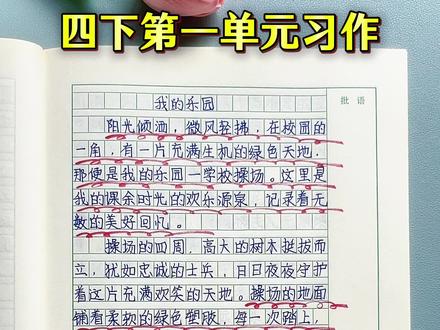 四下第一单元习作
批语
我的乐园
阳光倾洒，微风轻拂，在校园的
一角，有一片充满生机的绿色天地，
那便是我的乐园—学校操场。这里是
我的课余时光的欢乐源泉，记录着无
数的美好回忆。
操场的四周，高大的树木挺拔而
立，犹如忠诚的士兵，日日夜夜守护
着这片充满欢笑的天地。操场的地面
铺着柔软的绿色塑胶，每一次踏上，